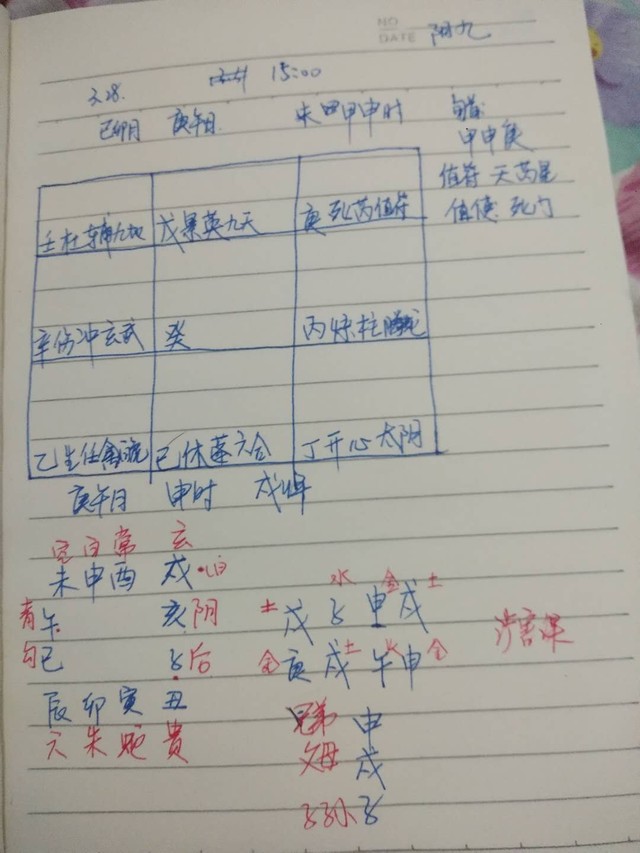 NO
DATE 阴九
3.28. 15:00
己卯月 庚午日 甲申时 旬首
甲申庚
值符 天芮星
值使 死门
壬杜辅九地 戊景英九天 庚死芮值符
辛伤冲玄武 癸 丙惊柱腾蛇
乙生任 己休蓬六合 丁开心太阴
庚午日 申时 戌将
空白常 玄
未申酉 戌
青午 亥阴
勾巳 子后
辰卯寅丑
六朱蛇贵
水 金 土
土戊子申戌
土 火
金庚戌午申金
涉害课
兄弟 申
父母 戌
子孙 子